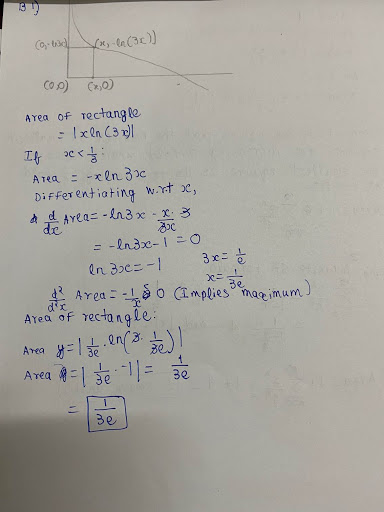 B 1)
(0,-ln3x)
(x,-ln(3x))
(0,0)
(x,0)
Area of rectangle
= |x ln(3x)|
If x < 1/3 :
Area = -x ln 3x
Differentiating w.r.t x,
d/dx Area = -ln3x - x/3x · 3
= -ln3x - 1 = 0
ln 3x = -1
3x = 1/e
x = 1/3e
d²/d²x Area = -1/x < 0 (Implies maximum)
Area of rectangle:
Area = |1/3e · ln(3 · 1/3e)|
Area = |1/3e · -1| = 1/3e
= 1/3e